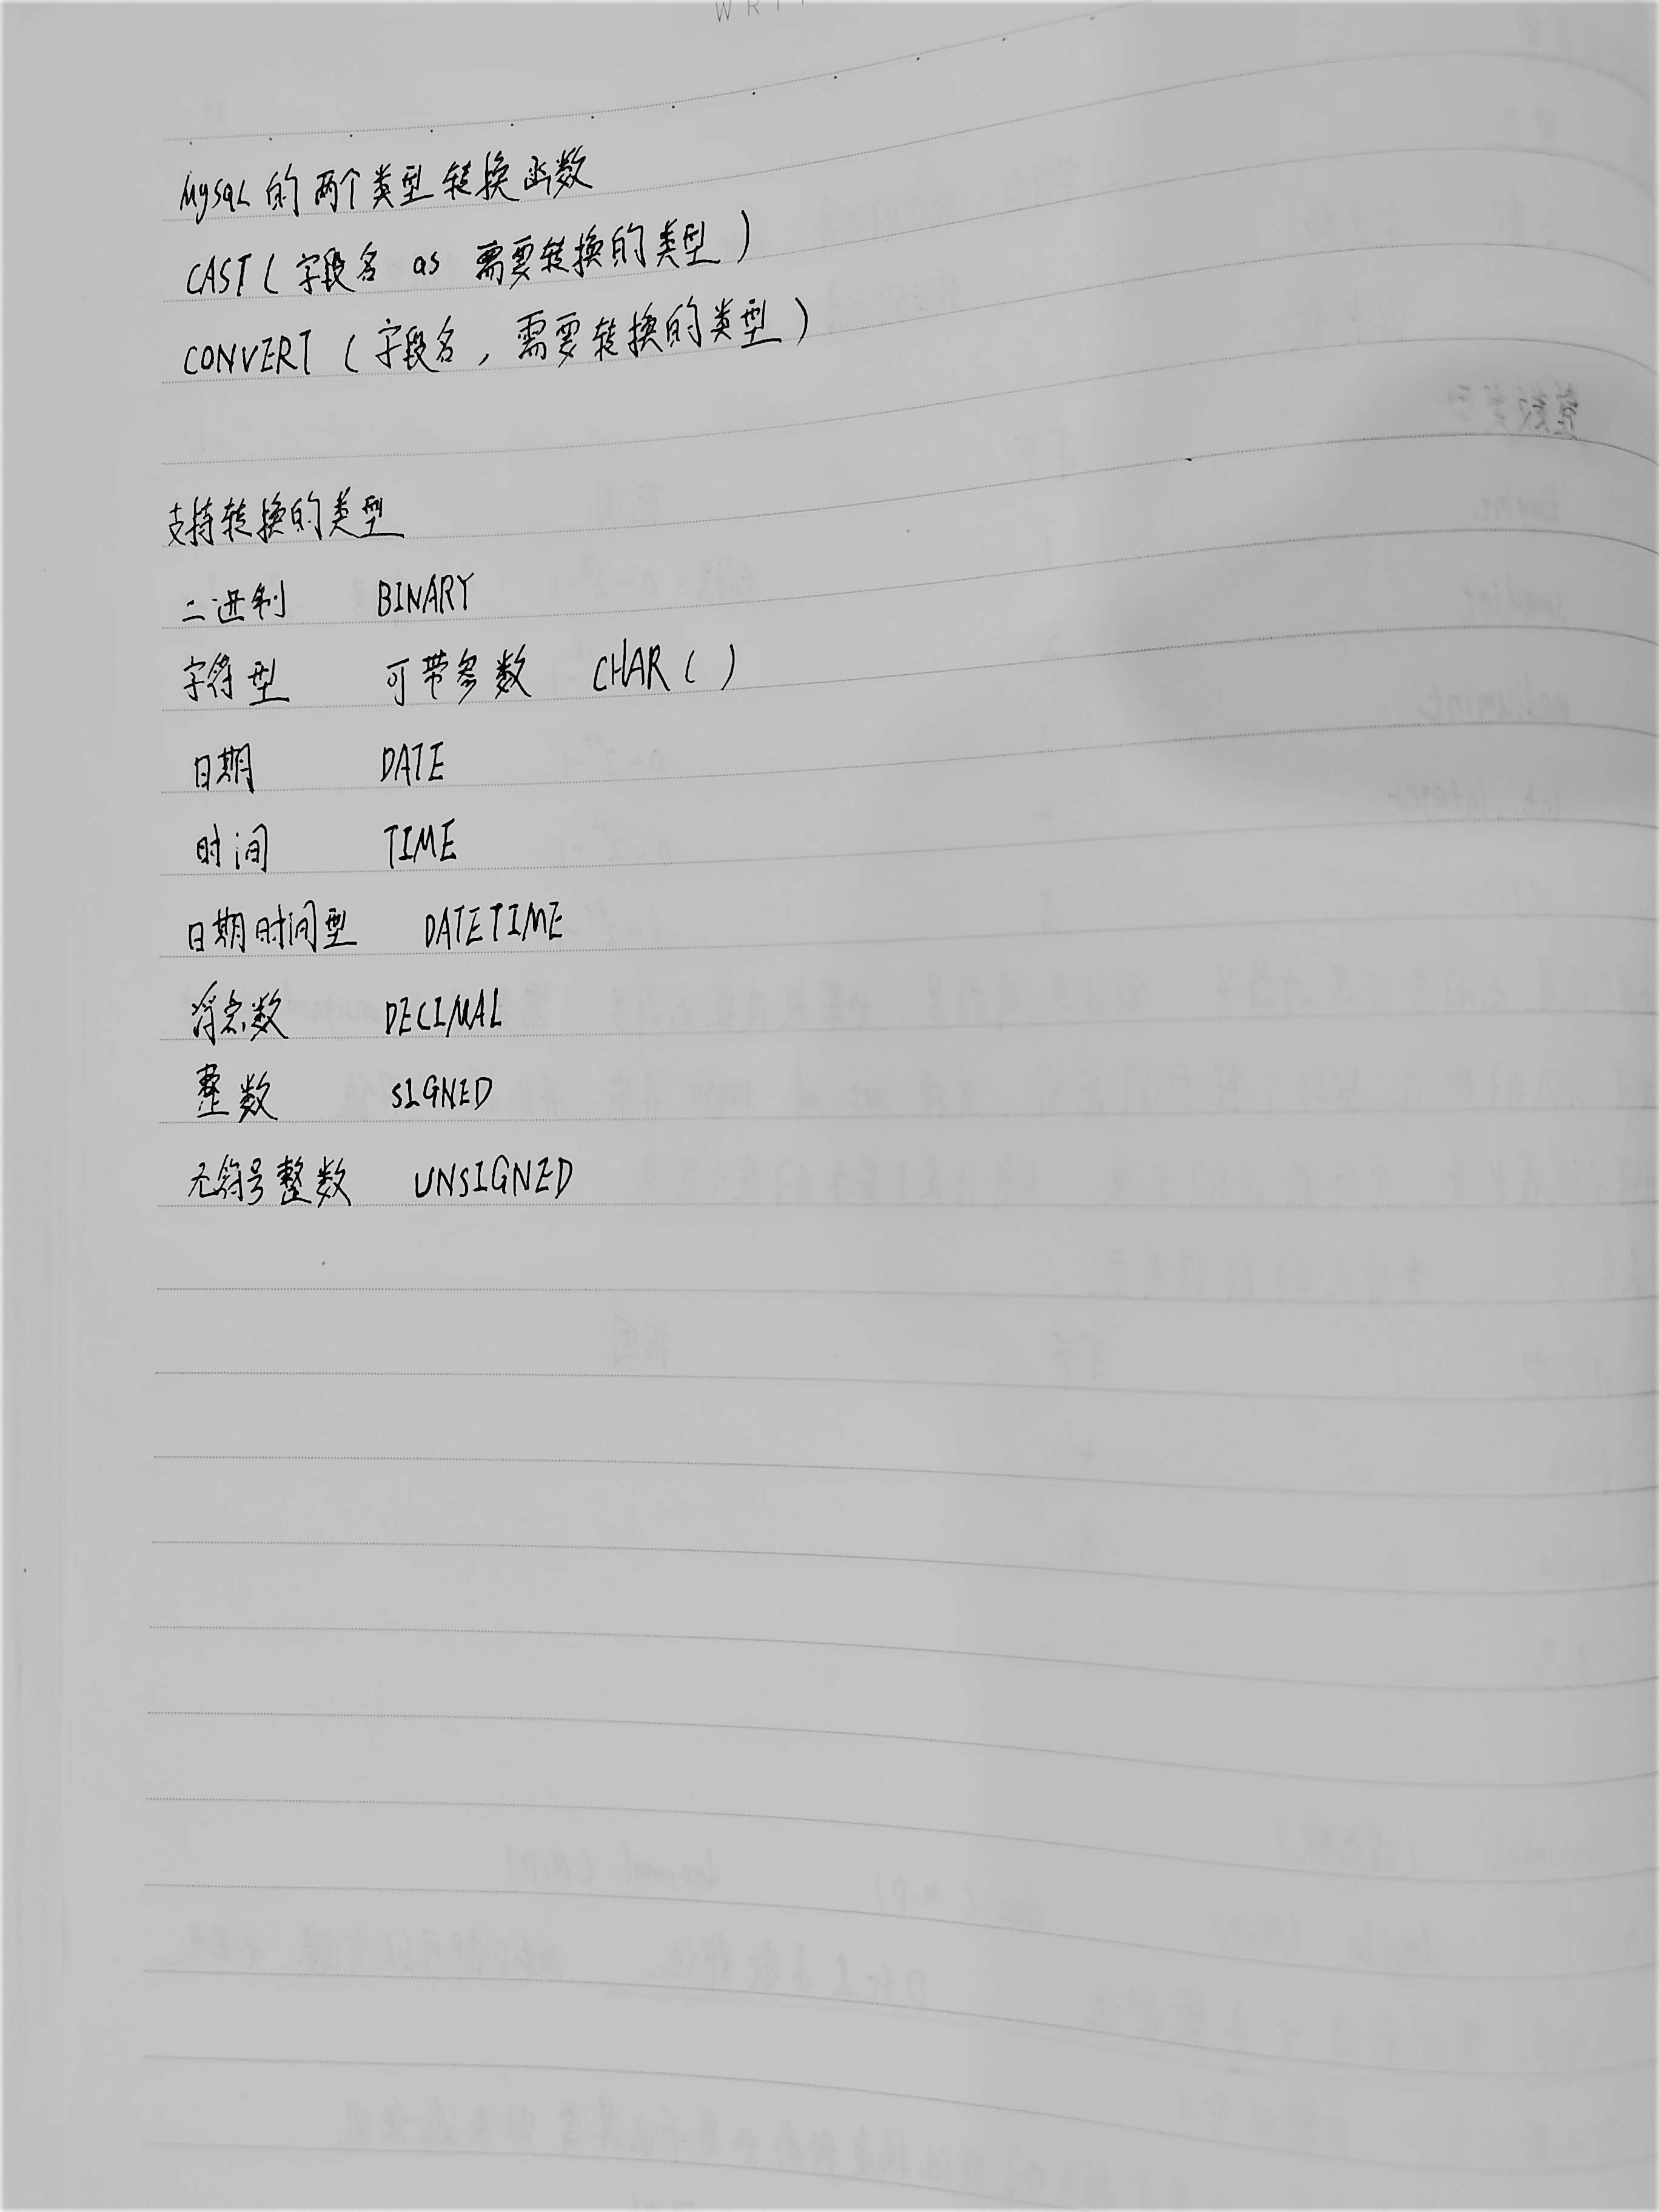 MySQL的两个类型转换函数
CAST(字段名 as 需要转换的类型)
CONVERT(字段名,需要转换的类型)
支持转换的类型
二进制 BINARY
字符型 可带参数 CHAR()
日期 DATE
时间 TIME
日期时间型 DATETIME
浮点数 DECIMAL
整数 SIGNED
无符号整数 UNSIGNED